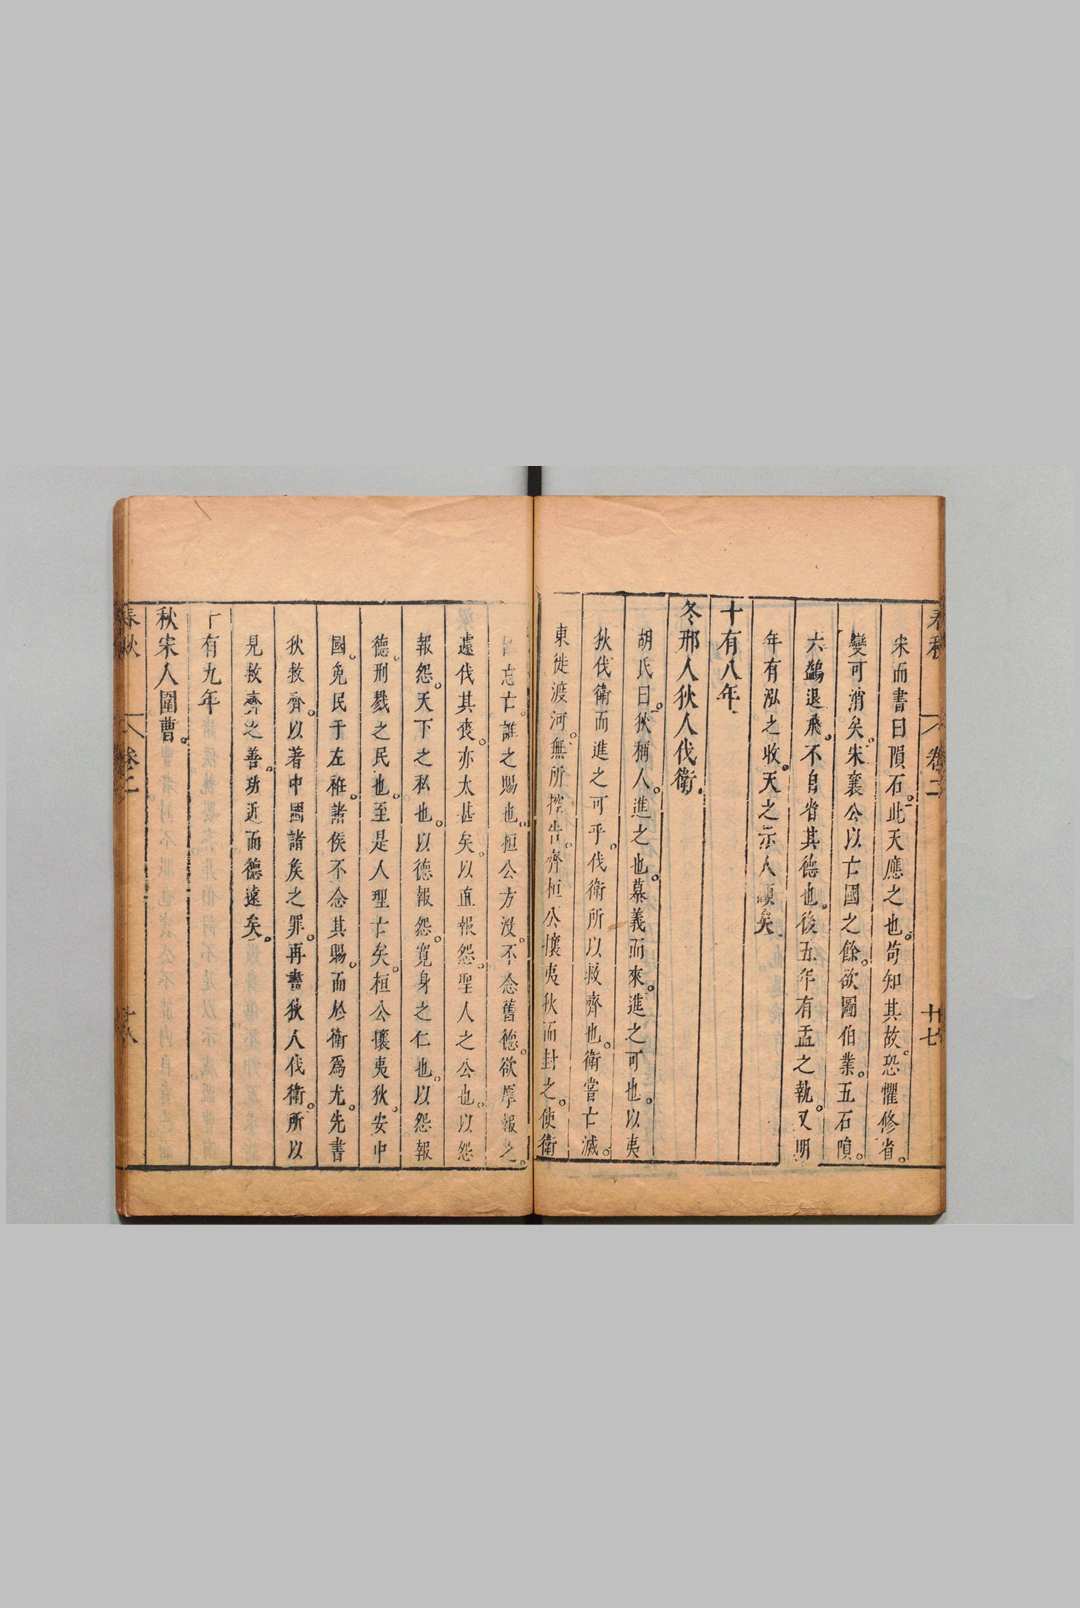 春秋 卷二 十七
宋而書曰隕石。此天應之也。苟知其故。恐懼修省。
變可消矣。宋襄公以亡國之餘。欲圖伯業。五石隕。
六鷁退飛。不自省其德也。後五年有盂之執。又明
年有泓之敗。天之示人顯矣。
十有八年。
冬邢人狄人伐衛。
胡氏曰。狄稱人。進之也。慕義而來。進之可也。以夷
狄伐衛而進之可乎。伐衛所以救齊也。衛嘗亡滅。
東徙渡河。無所控告。齊桓公攘夷狄而封之。使衛
國忘亡。誰之賜也。桓公方沒。不念舊德。欲厚報之。
遽伐其喪。亦太甚矣。以直報怨。聖人之公也。以怨
報怨。天下之私也。以德報怨。寬身之仁也。以怨報
德。刑戮之民也。至是人理亡矣。桓公攘夷狄。安中
國。免民于左衽。諸侯不念其賜。而於衛爲尤。先書
狄救齊。以著中國諸侯之罪。再書狄人伐衛。所以
見救齊之善。功近而德遠矣。
十有九年
秋宋人圍曹。
春秋 卷二 十八